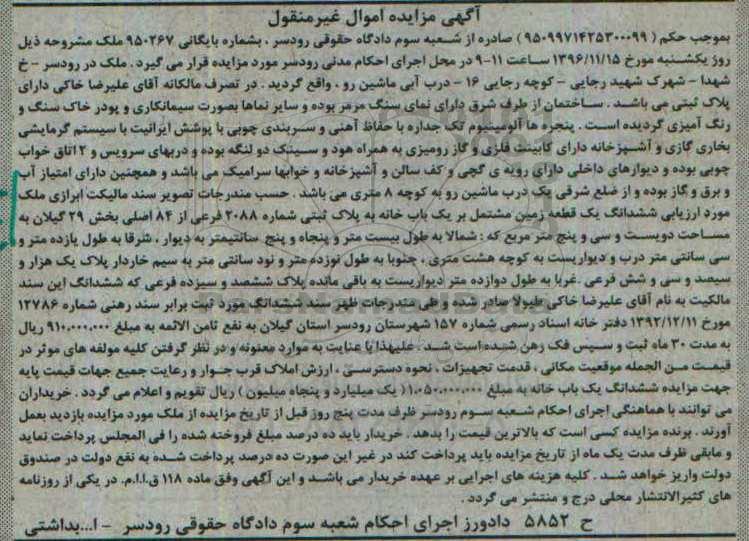 آگهی مزایده اموال غیرمنقول
بموجب حکم ( ۹۵۰۹۹۷۱۴۲۵۳۰۰۰۹۹) صادره از شعبه سوم دادگاه حقوقی رودسر ، بشماره بایگانی ۹۵۰۲۶۷ ملک مشروحه ذیل
روز یکشنبه مورخ ۱۳۹۶/۱۱/۱۵ ساعت ۱۱-۹ در محل اجرای احکام مدنی رودسر مورد مزایده قرار می گیرد . ملک در رودسر - خ
شهدا - شهرک شهید رجایی - کوچه رجایی ۱۶ - درب آبی ماشین رو ، واقع گردید . در تصرف مالکانه آقای علیرضا خاکی دارای
پلاک ثبتی می باشد . ساختمان از طرف شرق دارای نمای سنگ مرمر بوده و سایر نماها بصورت سیمانکاری و پودر خاک سنگ و
رنگ آمیزی گردیده است . پنجره ها آلومینیوم تک جداره با حفاظ آهنی و سربندی چوبی با پوشش ایرانیت با سیستم گرمایشی
بخاری گازی و آشپزخانه دارای کابینت فلزی و گاز رومیزی به همراه هود و سینک دو لنگه بوده و دربهای سرویس و ۲ اتاق خواب
چوبی بوده و دیوارهای داخلی دارای رویه ی گچی و کف سالن و آشپزخانه و خوابها سرامیک می باشد و همچنین دارای امتیاز آب
و برق و گاز بوده و از ضلع شرقی یک درب ماشین رو به کوچه ۸ متری می باشد . حسب مندرجات تصویر سند مالیکت ابرازی ملک
مورد ارزیابی ششدانگ یک قطعه زمین مشتمل بر یک باب خانه به پلاک ثبتی شماره ۲۰۸۸ فرعی از ۸۴ اصلی بخش ۲۹ گیلان به
مساحت دویست و سی و پنج متر مربع که : شمالا به طول بیست متر و پنجاه و پنج سانتیمتر به دیوار ، شرقا به طول یازده متر و
سی سانتی متر درب و دیواریست به کوچه هشت متری ، جنوبا به طول نوزده متر و نود سانتی متر به سیم خاردار پلاک یک هزار و
سیصد و سی و شش فرعی .غربا به طول دوازده متر دیواریست به باقی مانده پلاک ششصد و سیزده فرعی که ششدانگ این سند
مالکیت به نام آقای علیرضا خاکی طیولا صادر شده و طی مندرجات ظهر سند ششدانگ مورد ثبت برابر سند رهنی شماره ۱۲۷۸۶
مورخ ۱۳۹۲/۱۲/۱۱ دفتر خانه اسناد رسمی شماره ۱۵۷ شهرستان رودسر استان گیلان به نفع ثامن الائمه به مبلغ ۹۱۰،۰۰۰،۰۰۰ ریال
به مدت ۳۰ ماه ثبت و سپس فک رهن شده است شد . علیهذا با عنایت به موارد معنونه و در نظر گرفتن کلیه مولفه های موثر در
قیمت من الجمله موقعیت مکانی ، قدمت تجهیزات ، نحوه دسترسی ، ارزش املاک قرب جوار و رعایت جمیع جهات قیمت پایه
جهت مزایده ششدانگ یک باب خانه به مبلغ ۱،۰۵۰،۰۰۰،۰۰۰ ( یک میلیارد و پنجاه میلیون ) ریال تقویم و اعلام می گردد . خریداران
می توانند با هماهنگی اجرای احکام شعبه سوم رودسر ظرف مدت پنج روز قبل از تاریخ مزایده از ملک مورد مزایده بازدید بعمل
آورند . برنده مزایده کسی است که بالاترین قیمت را بدهد . خریدار باید ده درصد مبلغ فروخته شده را فی المجلس پرداخت نماید
و مابقی ظرف مدت یک ماه از تاریخ مزایده باید پرداخت کند در غیر این صورت ده درصد پرداخت شده به نفع دولت در صندوق
دولت واریز خواهد شد . کلیه هزینه های اجرایی بر عهده خریدار می باشد و این آگهی وفق ماده ۱۱۸ ق.ا.ا.م. در یکی از روزنامه
های کثیرالانتشار محلی درج و منتشر می گردد .
ح ۵۸۵۲ دادورز اجرای احکام شعبه سوم دادگاه حقوقی رودسر - ا...بداشتی